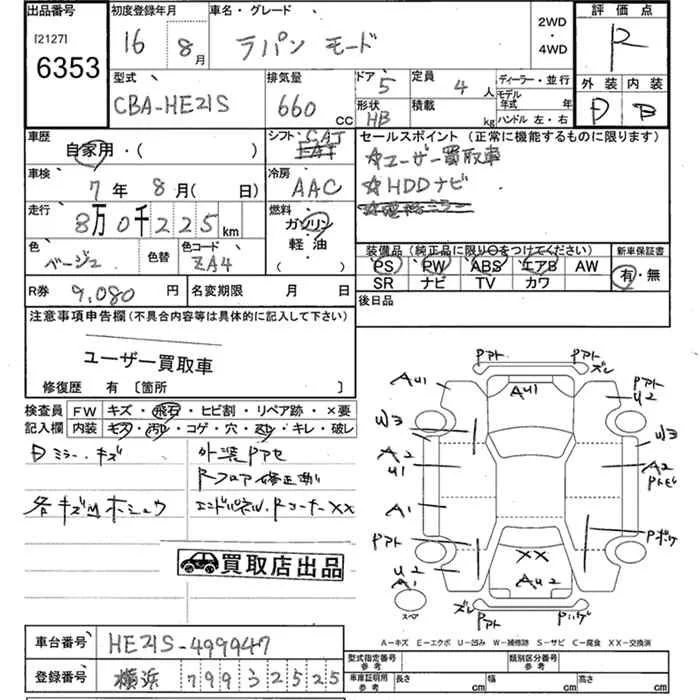 出品番号
[2127]
6353
初度登録年月
16 8月
車名・グレード
ラパン モード
2WD
・
4WD
評価点
R
外装 内装
D D
型式
CBA-HE21S
排気量
660 cc
ドア 5
定員 4人
形状 HB
積載 kg
ディーラー・並行
モデル年式 年
ハンドル 左・右
車歴
自家用・( )
シフト CAT
冷房
AAC
セールスポイント (正常に機能するものに限ります)
☆ユーザー買取車
☆HDDナビ
車検
7年 8月( 日)
走行
8万0千225km
燃料
ガソリン
軽油
( )
色
ベージュ
色替
色コード
ZA4
装備品(純正品に限り○をつけてください)
PS PW ABS エアB AW
SR ナビ TV カワ
新車保証書
有・無
R券 9,080円
名変期限 月 日
後日品
注意事項申告欄(不具合内容等は具体的に記入して下さい)
ユーザー買取車
修復歴 有 〔箇所 〕
検査員 FW キズ・飛石・ヒビ割・リペア跡・×要
記入欄 内装 キズ・汚レ・コゲ・穴・スレ・キレ・破レ
Dミラー.キズ
外装アセ
Rフロア修正跡
各キズ凹ホシュウ
エンドパネル.RコーナーXX
買取店出品
Pアト Pアト ズレ
AU1 AU1 Pアト U2
W3 W3
A2 U1
A2 Pトビ
A1
Pアト
Pボケ
U2 A1
XX
AU2
ズレ Pアト Pハゲ
スペア
A－キズ E－エクボ U－凹み W－補修跡 S－サビ C－腐食 XX－交換済
車台番号 HE21S-499947
登録番号 横浜 799 ３2525
型式指定番号 参考
類別区分番号 参考
車庫証明用 参考
長さ cm
幅 cm
高さ cm